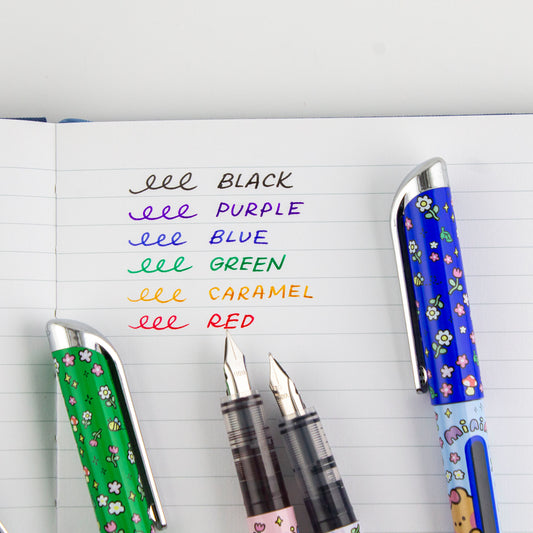 BLACK
PURPLE
BLUE
GREEN
CARAMEL
RED